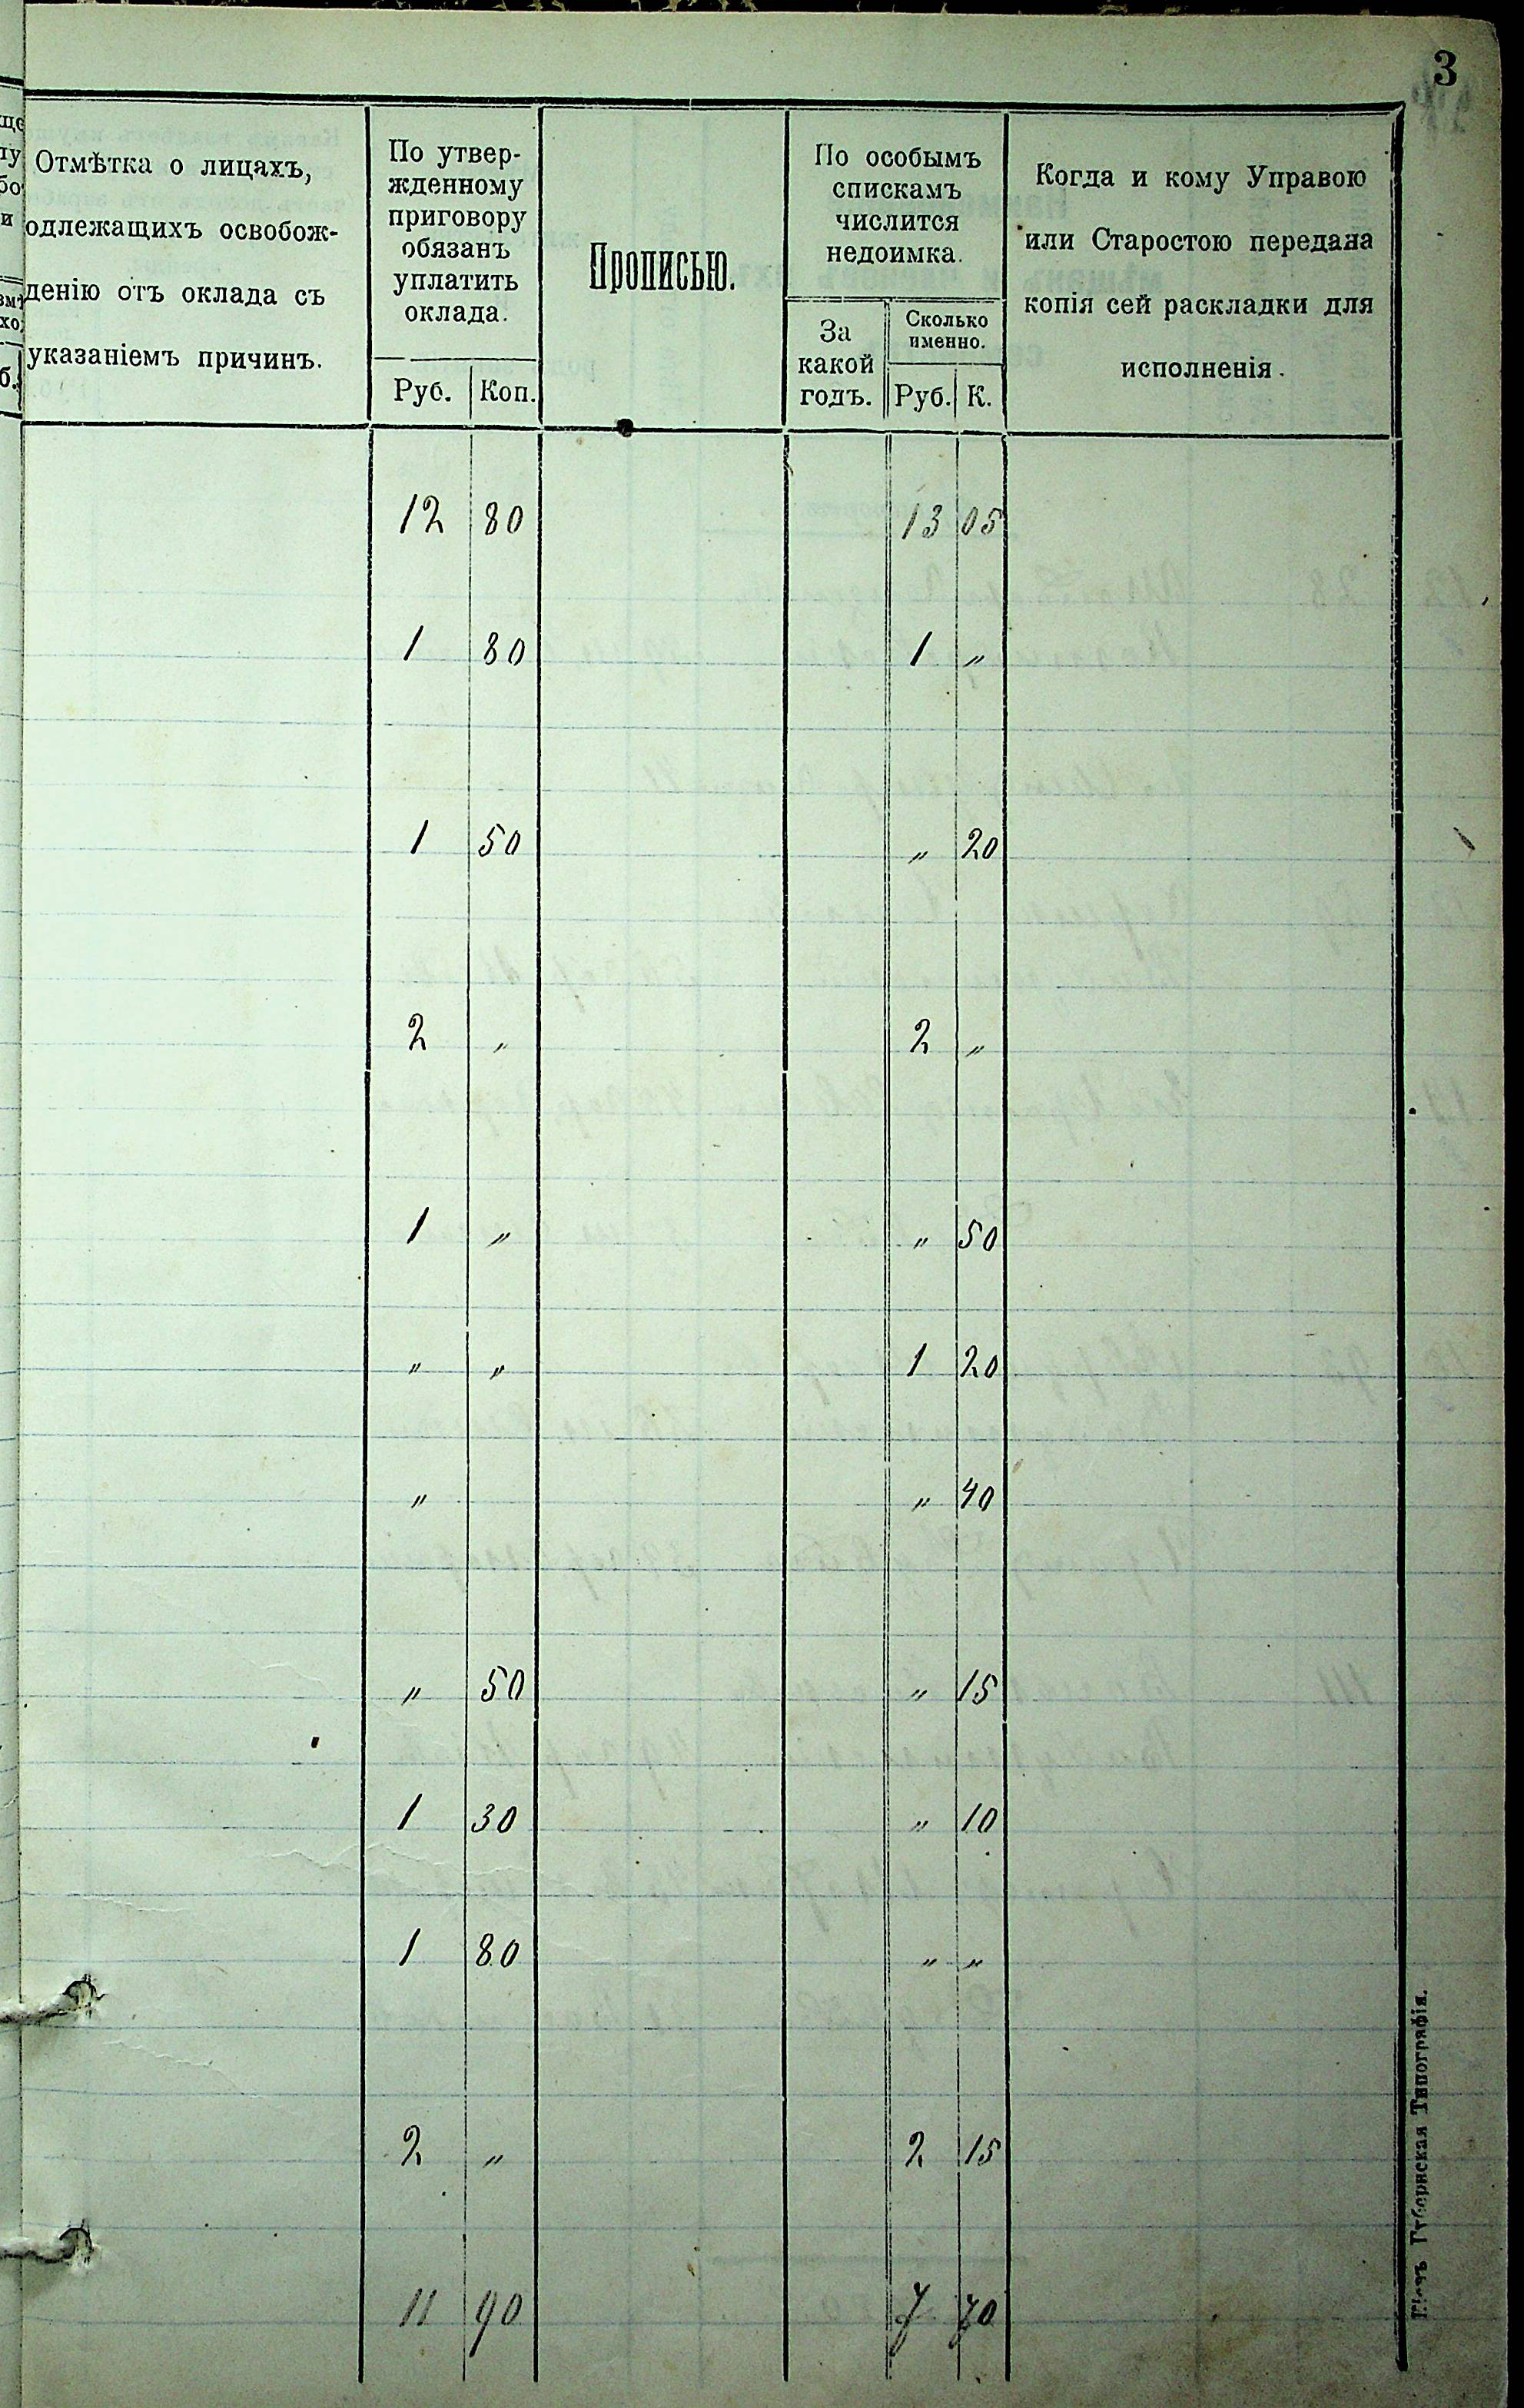 3
Отмѣтка о лицахъ,
одлежащихъ освобож-
денію отъ оклада съ
указаніемъ причинъ.
По утвер-
жденному
приговору
обязанъ
уплатить
оклада.
Руб. Коп.
Прописью.
По особымъ
спискамъ
числится
недоимка.
За
какой
годъ.
Сколько
именно.
Руб. К.
Когда и кому Управою
или Старостою передана
копія сей раскладки для
исполненія.
12 80 13 05
1 80 1 „
1 50 „ 20
2 „ 2 „
1 „ „ 50
„ „ 1 20
„ „ 40
„ 50 „ 15
1 30 „ 10
1 80 „ „
2 „ 2 15
11 90 7 70
Губернская Типографія.